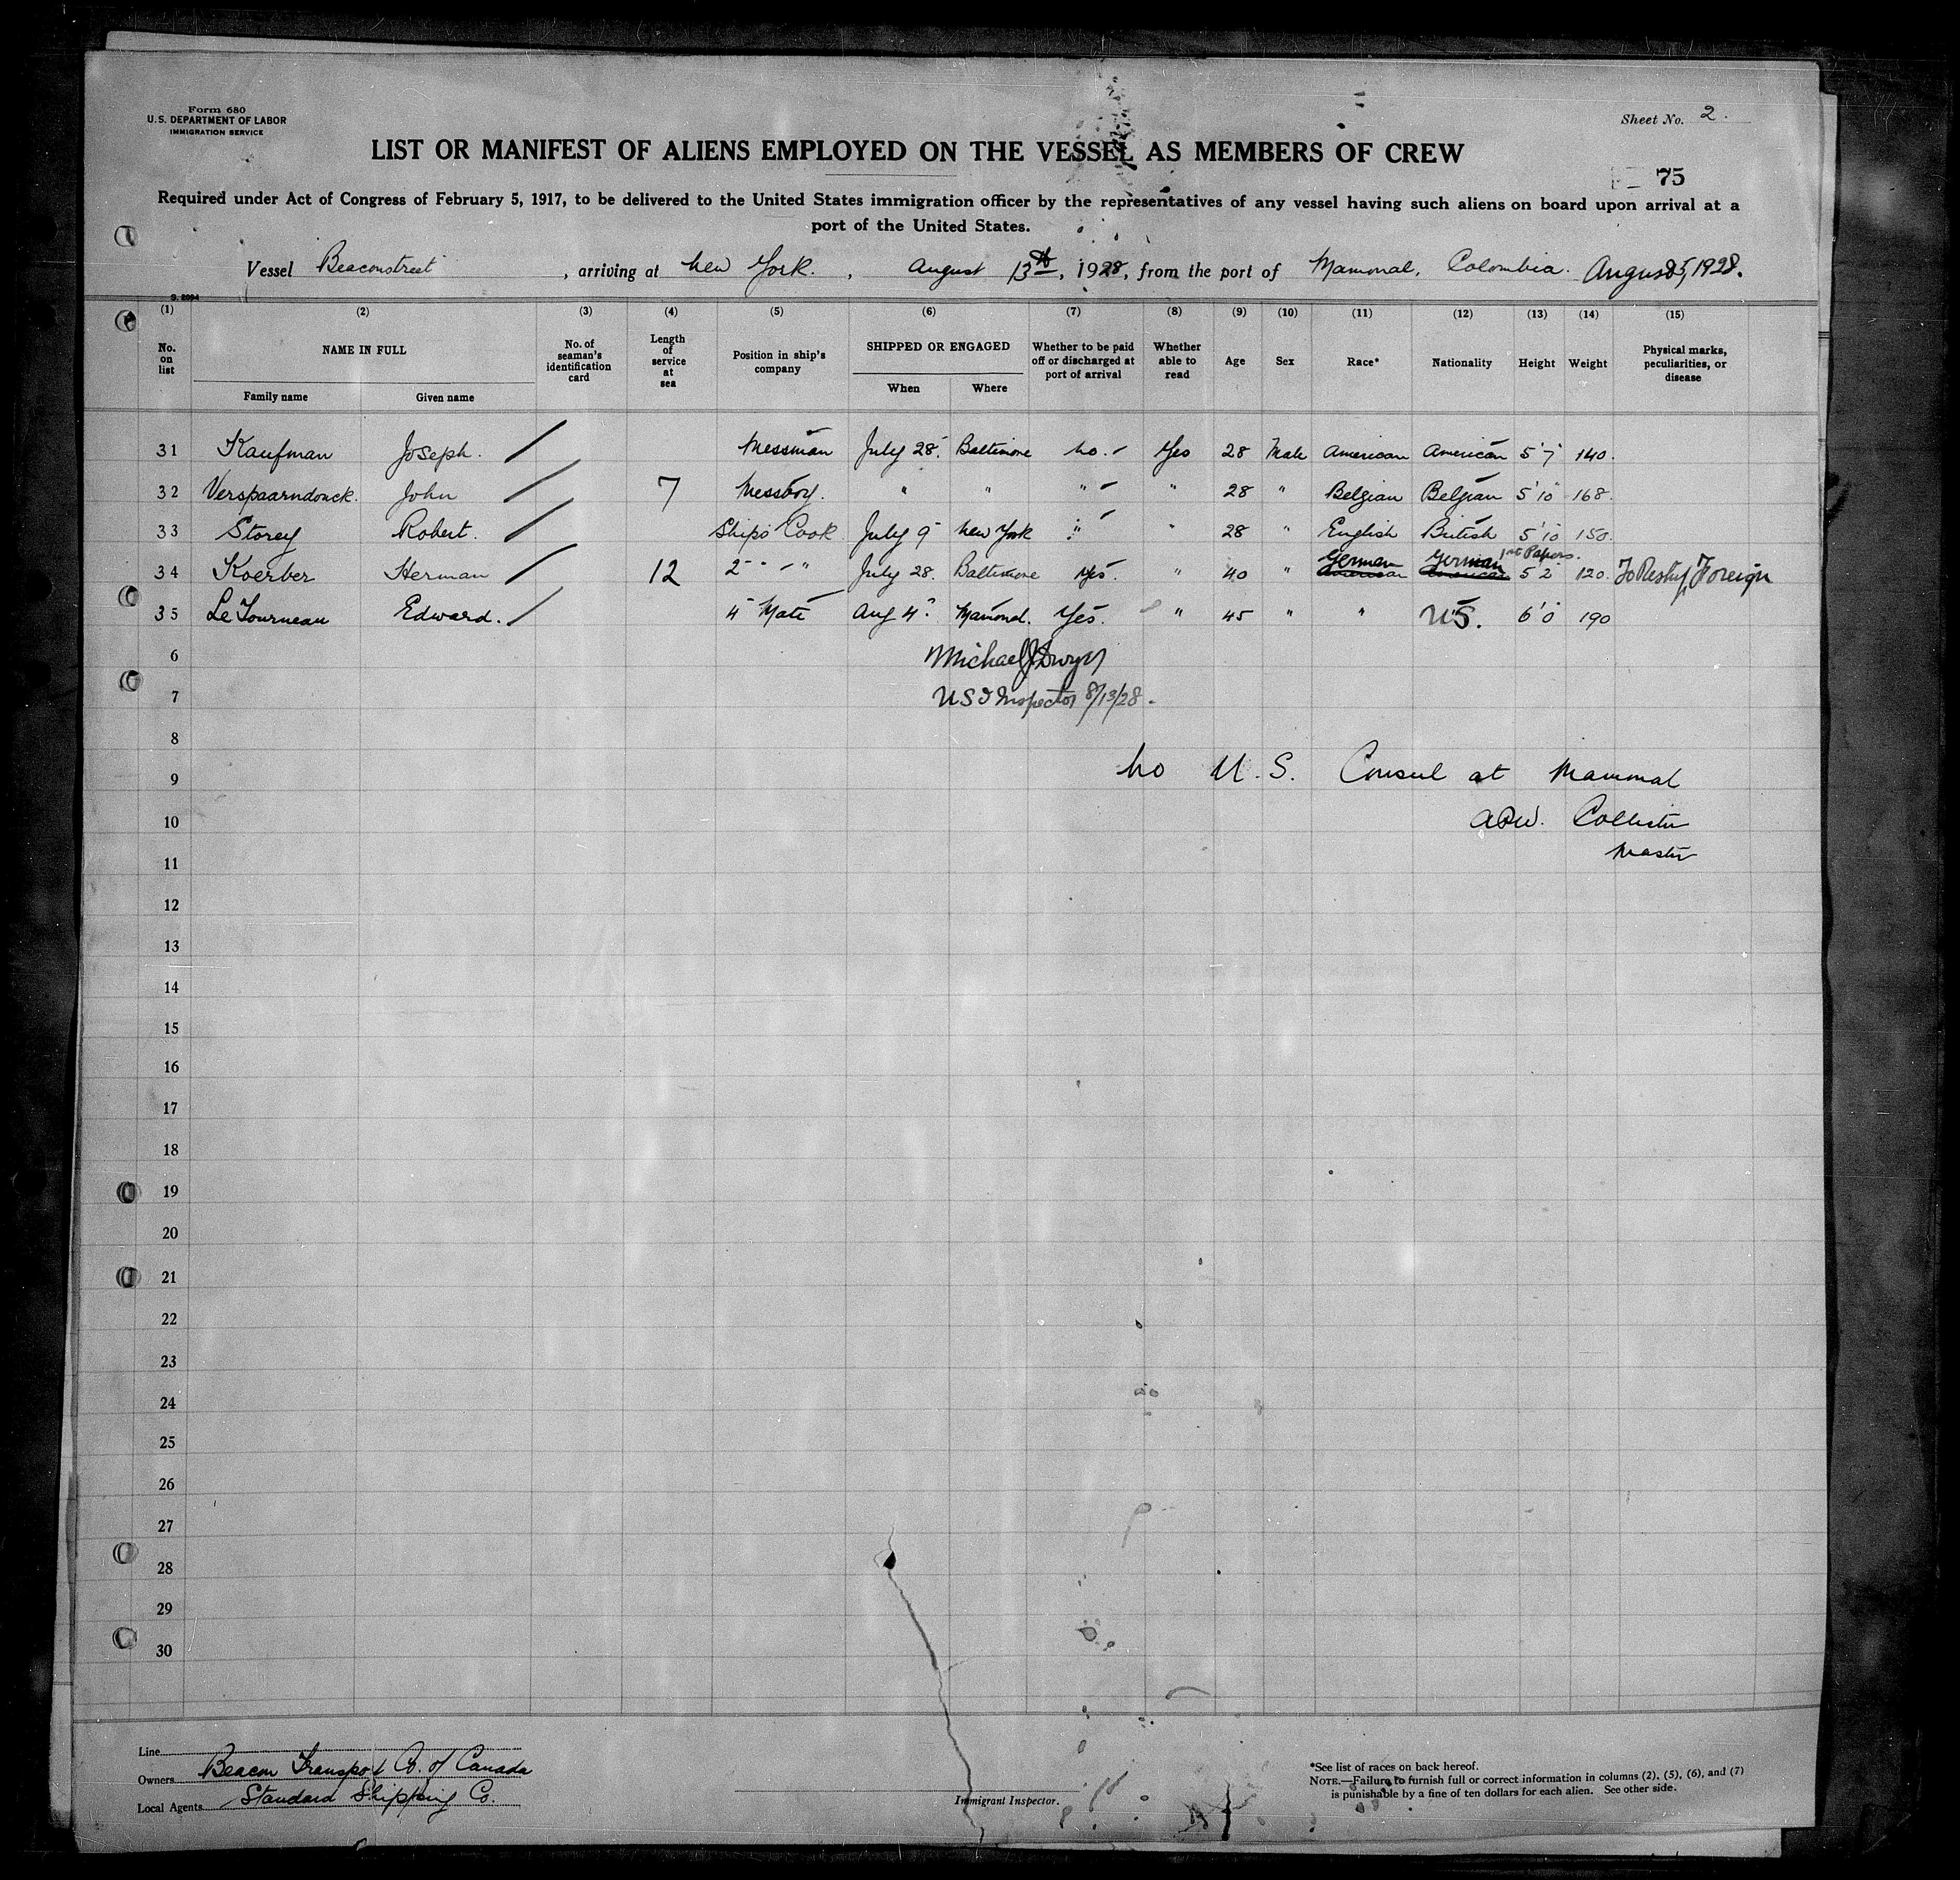 Form 680
U.S. DEPARTMENT OF LABOR
IMMIGRATION SERVICE
Sheet No. 2.
LIST OR MANIFEST OF ALIENS EMPLOYED ON THE VESSEL AS MEMBERS OF CREW
75
Required under Act of Congress of February 5, 1917, to be delivered to the United States immigration officer by the representatives of any vessel having such aliens on board upon arrival at a
port of the United States.
Vessel Beaconstreet, arriving at New York., August 13th, 1928, from the port of Mamonal, Colombia. August 5, 1928.
(1) (2) (3) (4) (5) (6) (7) (8) (9) (10) (11) (12) (13) (14) (15)
No. on list NAME IN FULL No. of seaman's identification card Length of service at sea Position in ship's company SHIPPED OR ENGAGED Whether to be paid off or discharged at port of arrival Whether able to read Age Sex Race* Nationality Height Weight Physical marks, peculiarities, or disease
Family name Given name When Where
31 Kaufman Joseph. Messman July 28. Baltimore No. Yes 28 Male American American 5'7" 140.
32 Verspaarndonck. John 7 Messboy. " " " " 28 " Belgian Belgian 5'10" 168.
33 Storey Robert. Ships Cook July 9 New York " " 28 " English British 5'10" 150.
34 Koerber Herman 12 2 " " July 28. Baltimore Yes. " 40 " German American German American 1st Papers. 5'2" 120. To Reship Foreign
35 Le Tourneau Edward. 4 Mate Aug 4. Mamonal. Yes. " 45 " " U.S. 6'0" 190
6 Michael J Dwyer
7 US I Inspector 8/13/28.
8
9 No U.S. Consul at Mamonal
10 Collister
11 Master
12
13
14
15
16
17
18
19
20
21
22
23
24
25
26
27
28
29
30
Line
Owners Beacon Transport Co. of Canada
Local Agents Standard Shipping Co.
Immigrant Inspector.
*See list of races on back hereof.
NOTE.—Failure to furnish full or correct information in columns (2), (5), (6), and (7)
is punishable by a fine of ten dollars for each alien. See other side.